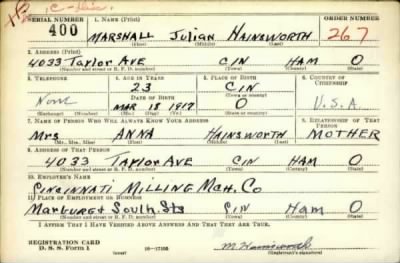 SERIAL NUMBER 1. NAME (Print) ORDER NUMBER
400 MARSHALL Julian HAINSWORTH 267
(First) (Middle) (Last)
2. ADDRESS (Print)
4033 Taylor AVE CIN HAM O
(Number and street or R. F. D. number) (Town) (County) (State)
3. TELEPHONE 4. AGE IN YEARS 5. PLACE OF BIRTH 6. COUNTRY OF CITIZENSHIP
None 23 CIN
DATE OF BIRTH (Town or county)
MAR 18 1917 O U.S.A.
(Exchange) (Number) (Mo.) (Day) (Yr.) (State or country)
7. NAME OF PERSON WHO WILL ALWAYS KNOW YOUR ADDRESS 8. RELATIONSHIP OF THAT PERSON
Mrs ANNA HAINSWORTH MOTHER
(Mr., Mrs., Miss) (First) (Middle) (Last)
9. ADDRESS OF THAT PERSON
4033 TAYlor AVE CIN HAM O
(Number and street or R. F. D. number) (Town) (County) (State)
10. EMPLOYER'S NAME
CINCINNATI MILLING MCH. CO
11. PLACE OF EMPLOYMENT OR BUSINESS
Marburg & South Sts CIN HAM O
(Number and street or R. F. D. number) (Town) (County) (State)
I AFFIRM THAT I HAVE VERIFIED ABOVE ANSWERS AND THAT THEY ARE TRUE.
REGISTRATION CARD
D. S. S. Form 1 (over) 16—17105 (Registrant's signature)